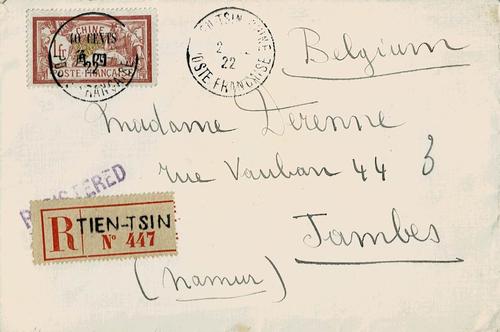 CHINE
40 CENTS
1 fr
POSTE FRANÇAISE
TIEN-TSIN CHINE
2
22
POSTE FRANÇAISE
Belgium
Madame Derenne
rue Vauban 44
REGISTERED
R TIEN-TSIN
Nº 447
Jambes
(Namur)